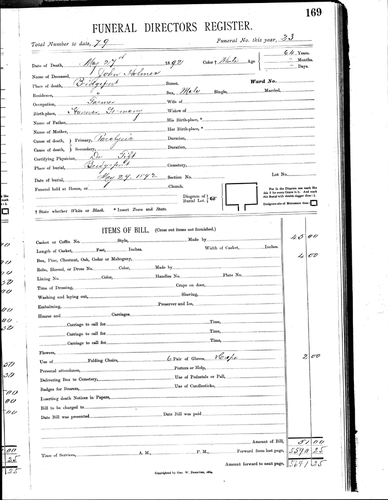 169
FUNERAL DIRECTORS REGISTER.
Total Number to date, 79 Funeral No. this year, 23
Date of Death, May 27th 1892 Color † White Age 64 Years.
– Months.
– Days.
Name of Deceased, John Holmes
Place of death, Bridgeport Street, Ward No.
Residence, " Sex, Male Single, Married,
Occupation, Farmer Wife of
Birthplace, Germany Widow of
Name of Father, His Birthplace, *
Name of Mother, Her Birthplace, *
Cause of death, Primary, Paralysis Duration,
Cause of death, Secondary, Duration,
Certifying Physician, Dr Gift
Place of burial, Bridgeport Cemetery,
Date of burial, May 29, 1892 Section No. Lot No.
Funeral held at House, or Church.
Diagram of Burial Lot
Put in the Diagram one mark thus
Designate site of Monument thus
† State whether White or Black. * Insert Town and State.
ITEMS OF BILL. (Cross out items not furnished).
Casket or Coffin No. Style, Made by 45 00
Length of Casket, Feet, Inches. Width of Casket, Inches.
Box, Pine, Chestnut, Oak, Cedar or Mahogany, 4 00
Robe, Shroud, or Dress No. Color, Made by
Lining No. Color, Handles No. Plate No.
Time of Dressing, Crape on door,
Washing and laying out, Shaving,
Embalming, Preserver and Ice,
Hearse and Carriages.
Carriage to call for Time,
Carriage to call for Time,
Carriage to call for Time,
Carriage to call for Time,
Flowers,
Use of Folding Chairs, 6 Pair of Gloves, Crape 2 00
Personal attendance, Porters or Help,
Delivering Box to Cemetery, Use of Pedestals or Pall,
Badges for Bearers, Use of Candlesticks,
Inserting death Notices in Papers,
Bill to be charged to
Date Bill was presented Date Bill was paid
Amount of Bill, 51 00
Time of Services, A. M., P. M. Forward from last page,
Amount forward to next page,